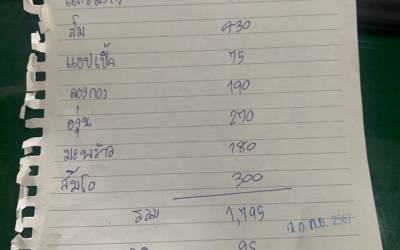 ส้ม 430
แอปเปิ้ล 75
ลองกอง 190
องุ่น 270
มะพร้าว 180
ส้มโอ 300
รวม 1,795
10 ก.ย. 2567
95